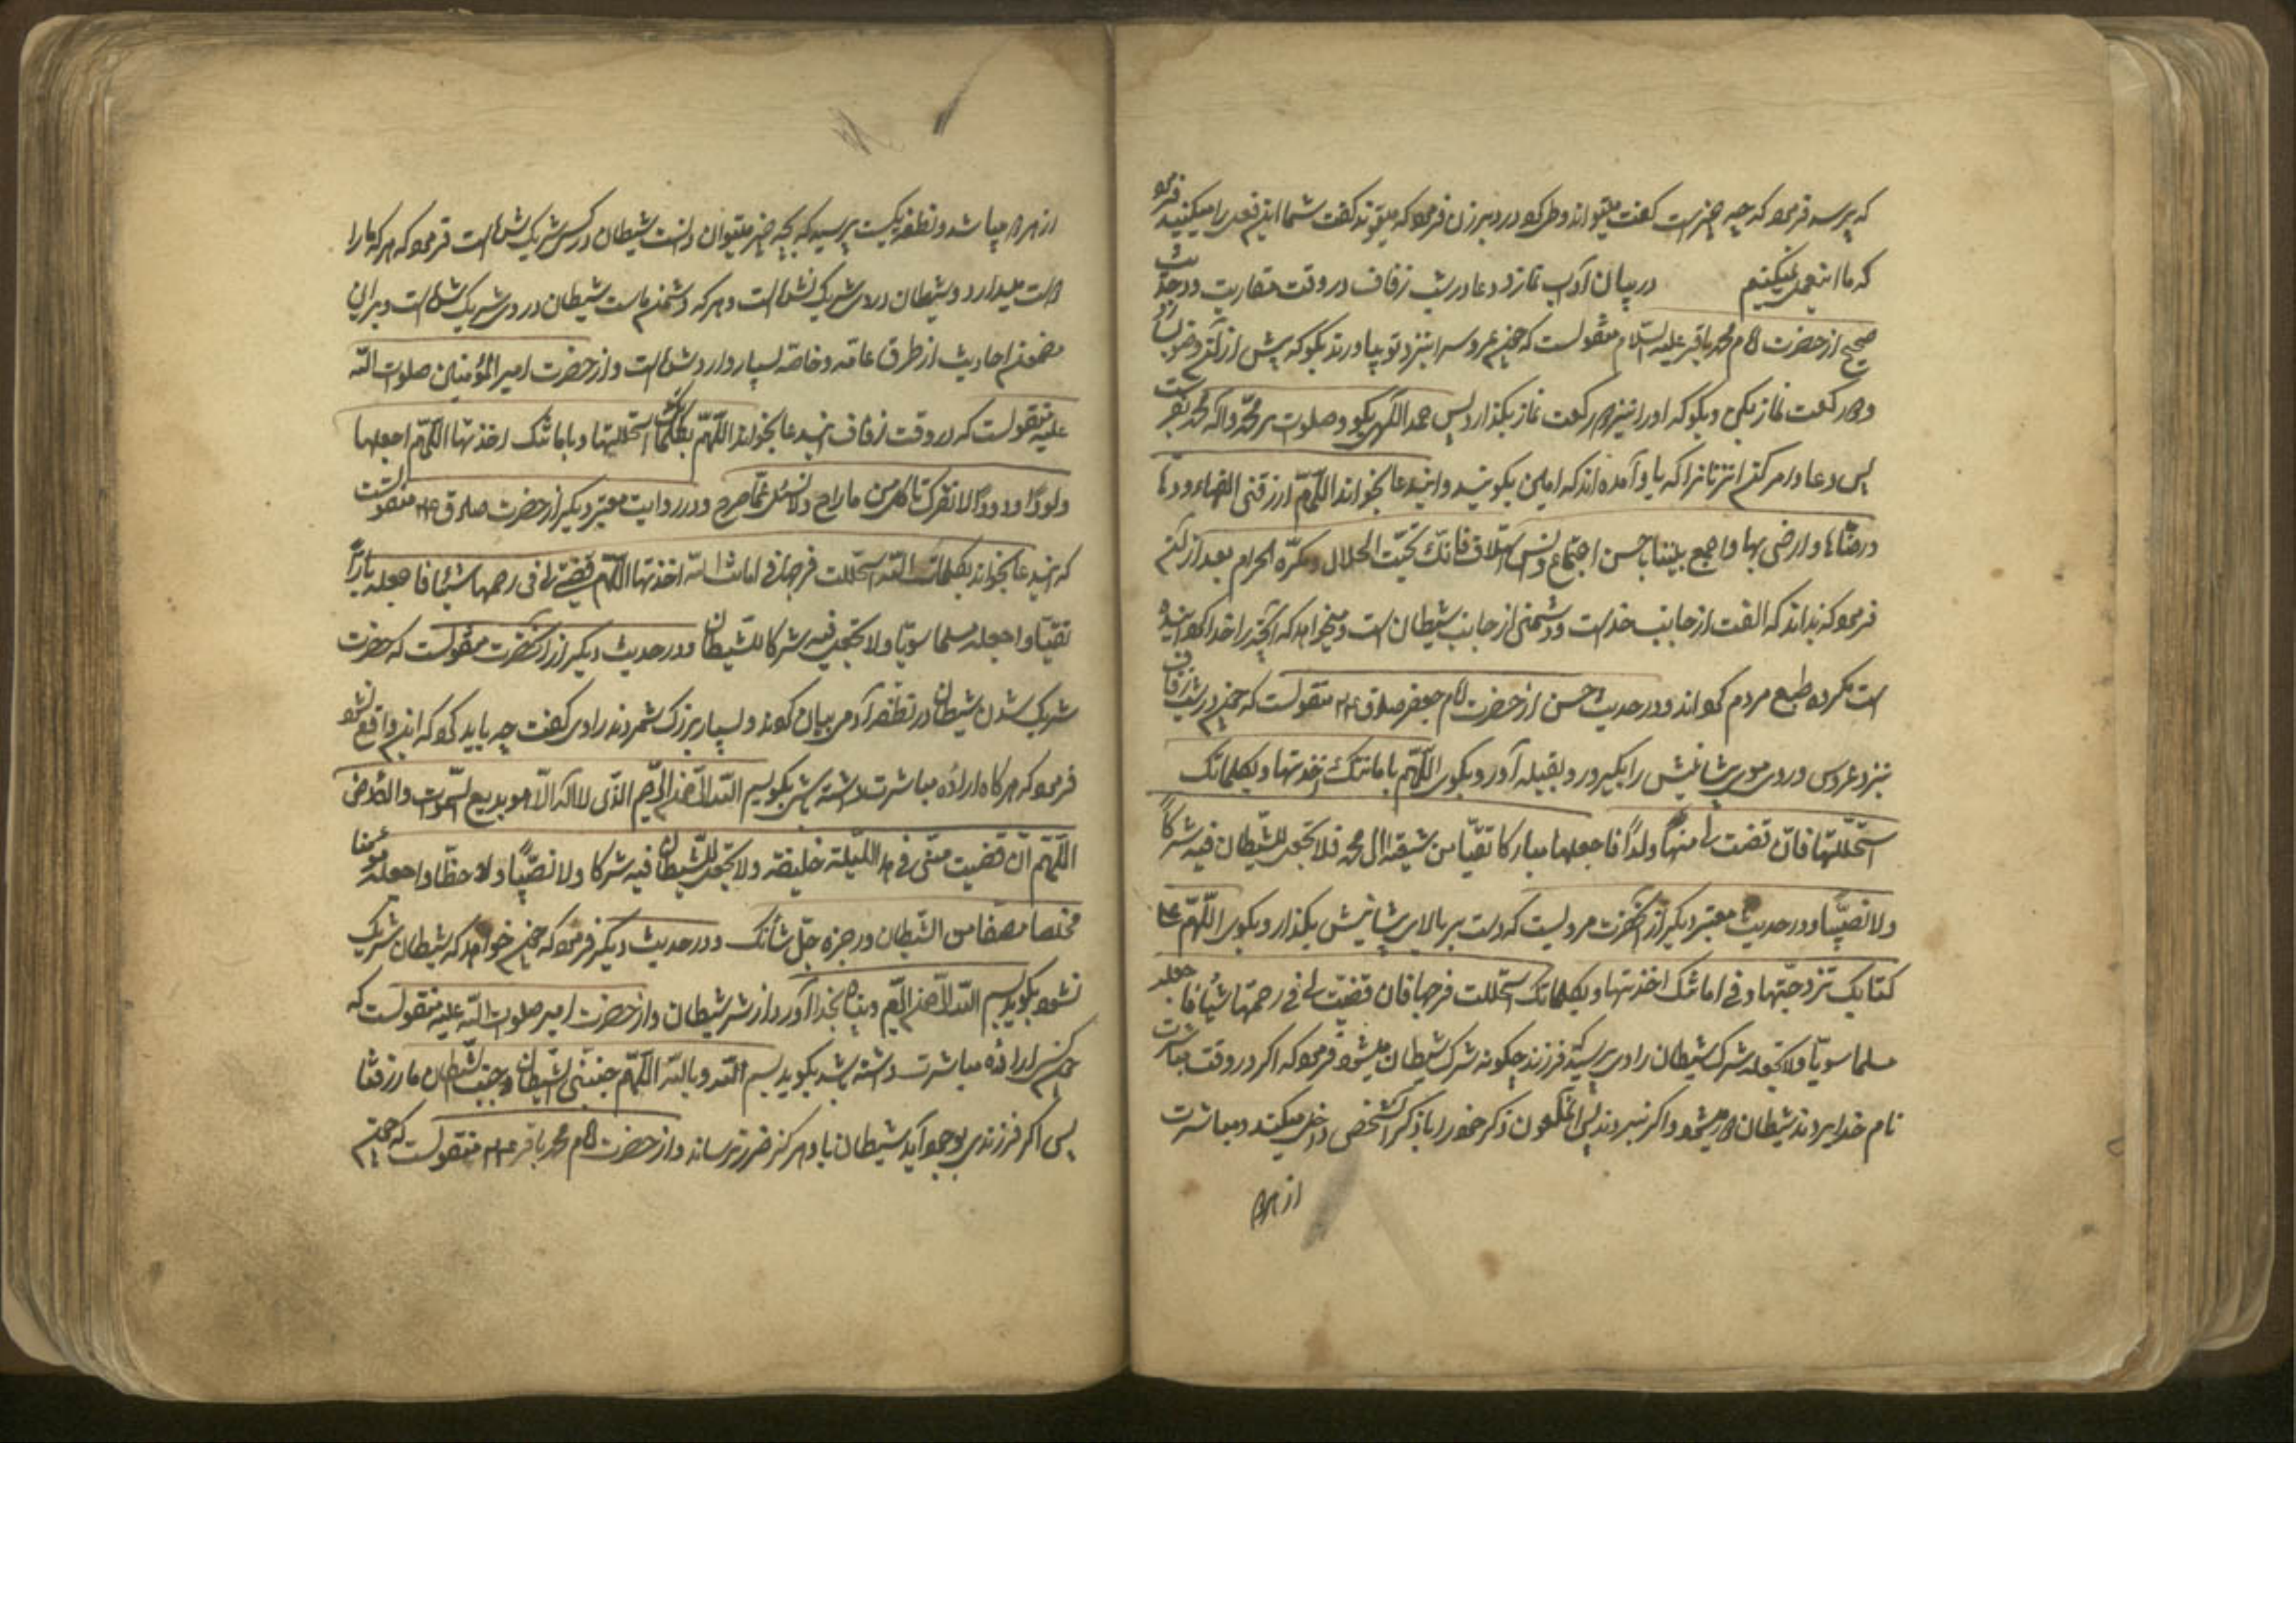 که بپرسد فرمود که چه چیز است گفت میتواند وطی کرد در دبر زن فرمود که میتواند گفت شما این فعل را میکنید فرمود
که ما این عمل نمیکنیم در بیان آداب نماز و دعا در شب زفاف در وقت مقاربت و در حدیث
صحیح از حضرت امام محمد باقر علیه السلام منقولست که چون عروس را بنزد تو بیاورند بگو که پیش از آن وضو بسازد
و دو رکعت نماز بکن و بگو که او را نیز دو رکعت نماز بگذارد پس حمد الهی بگو و صلوات بر محمد و آله محمد بفرست
پس دعا و امر کن انزنانرا که با او آمده اند که امین بگویند و ایندعا بخواند اللهم ارزقنی الفها و ودها
و رضاها و ارضی بها و اجمع بیننا باحسن اجتماع و انس ائتلاف فانک تحب الحلال و تکره الحرام بعد از آن
فرمود که بداند که الفت از جانب خداست و دشمنی از جانب شیطان است و میخواهد که آنچه را خدا گردانیده
است مکروه طبع مردم گرداند و در حدیث حسن از حضرت امام جعفر صادق ع منقولست که چون در شب زفاف
بنزد عروس وروی موی پیشانیش را بگیر و رو بقبله آور و بگوی اللهم بامانتک اخذتها و بکلماتک
استحللتها فان قضیت لی منها ولدا فاجعله مبارکا تقیا من شیعة ال محمد فلا تجعل للشیطان فیه شرکا
ولا نصیبا و در حدیث معتبر دیگر از آنحضرت مرویست که دست بر بالای پیشانیش بگذار و بگوی اللهم علی
کتابک تزوجتها و فی امانتک اخذتها و بکلماتک استحللت فرجها فان قضیت لی فی رحمها شیئا فاجعله
مسلما سویا ولا تجعله شرک شیطان راوی پرسید فرزند چگونه شرک شیطان میشود فرمود که اگر در وقت مباشرت
نام خدا بردند شیطان دور میشود و اگر نبردند پس الملعون ذکر خود را با ذکر آنشخص داخل میکند و مباشرت
از هردو
از هردو میباشد و نطفه یکیست پرسید که بچه چیز میتوان دانست شیطان در کسی شریک شده است فرمود که هر که ما را
دوست میدارد و شیطان در وی شریک نشده است و هر که دشمن ماست شیطان در وی شریک شده است و بر این
مضمون احادیث از طرق عامه و خاصه بسیار وارد شده است و از حضرت امیر المؤمنین صلوات الله
علیه منقولست که در وقت زفاف ایندعا بخواند اللهم بکلماتک استحللتها و بامانتک اخذتها اللهم اجعلها
ولودا ودودا لا تفرک تاکل من ما راح ولا تسئل عما صرح و در روایت معتبر دیگر از حضرت صادق ع منقولست
که ایندعا بخواند بکلمات الله استحللت فرجها و فی امانة الله اخذتها اللهم قضیت لی فی رحمها شیئا فاجعله بارا
تقیا و اجعله مسلما سویا ولا تجعل فیه شرکا للشیطان و در حدیث دیگر از آنحضرت منقولست که حضرت
شریک شدن شیطان در نطفه آدمی بیان کردند و بسیار بزرگ شمردند راوی گفت چه باید کرد که این واقع نشود
فرمود که هرگاه اراده مباشرت داشته باشی بگو بسم الله الرحمن الرحیم الذی لا اله الا هو بدیع السموات والارض
اللهم ان قضیت منی فی هذا اللیلة خلیفة ولا تجعل للشیطان فیه شرکا ولا نصیبا ولا حظا واجعله مؤمنا
مخلصا مصفا من الشیطان ورجزه جل ثناؤک و در حدیث دیگر فرمود که چون خواهد که شیطان شریک
نشود بگوید بسم الله الرحمن الرحیم و پناه بخدا آورد از شر شیطان و از حضرت امیر صلوات الله علیه منقولست که
چون کسی اراده مباشرت داشته باشد بگوید بسم الله وبالله اللهم جنبنی الشیطان وجنب الشیطان ما رزقتنا
پس اگر فرزندی بوجود آید شیطان باو هرگز ضرر نرساند و از حضرت امام محمد باقر ع منقولست که چون